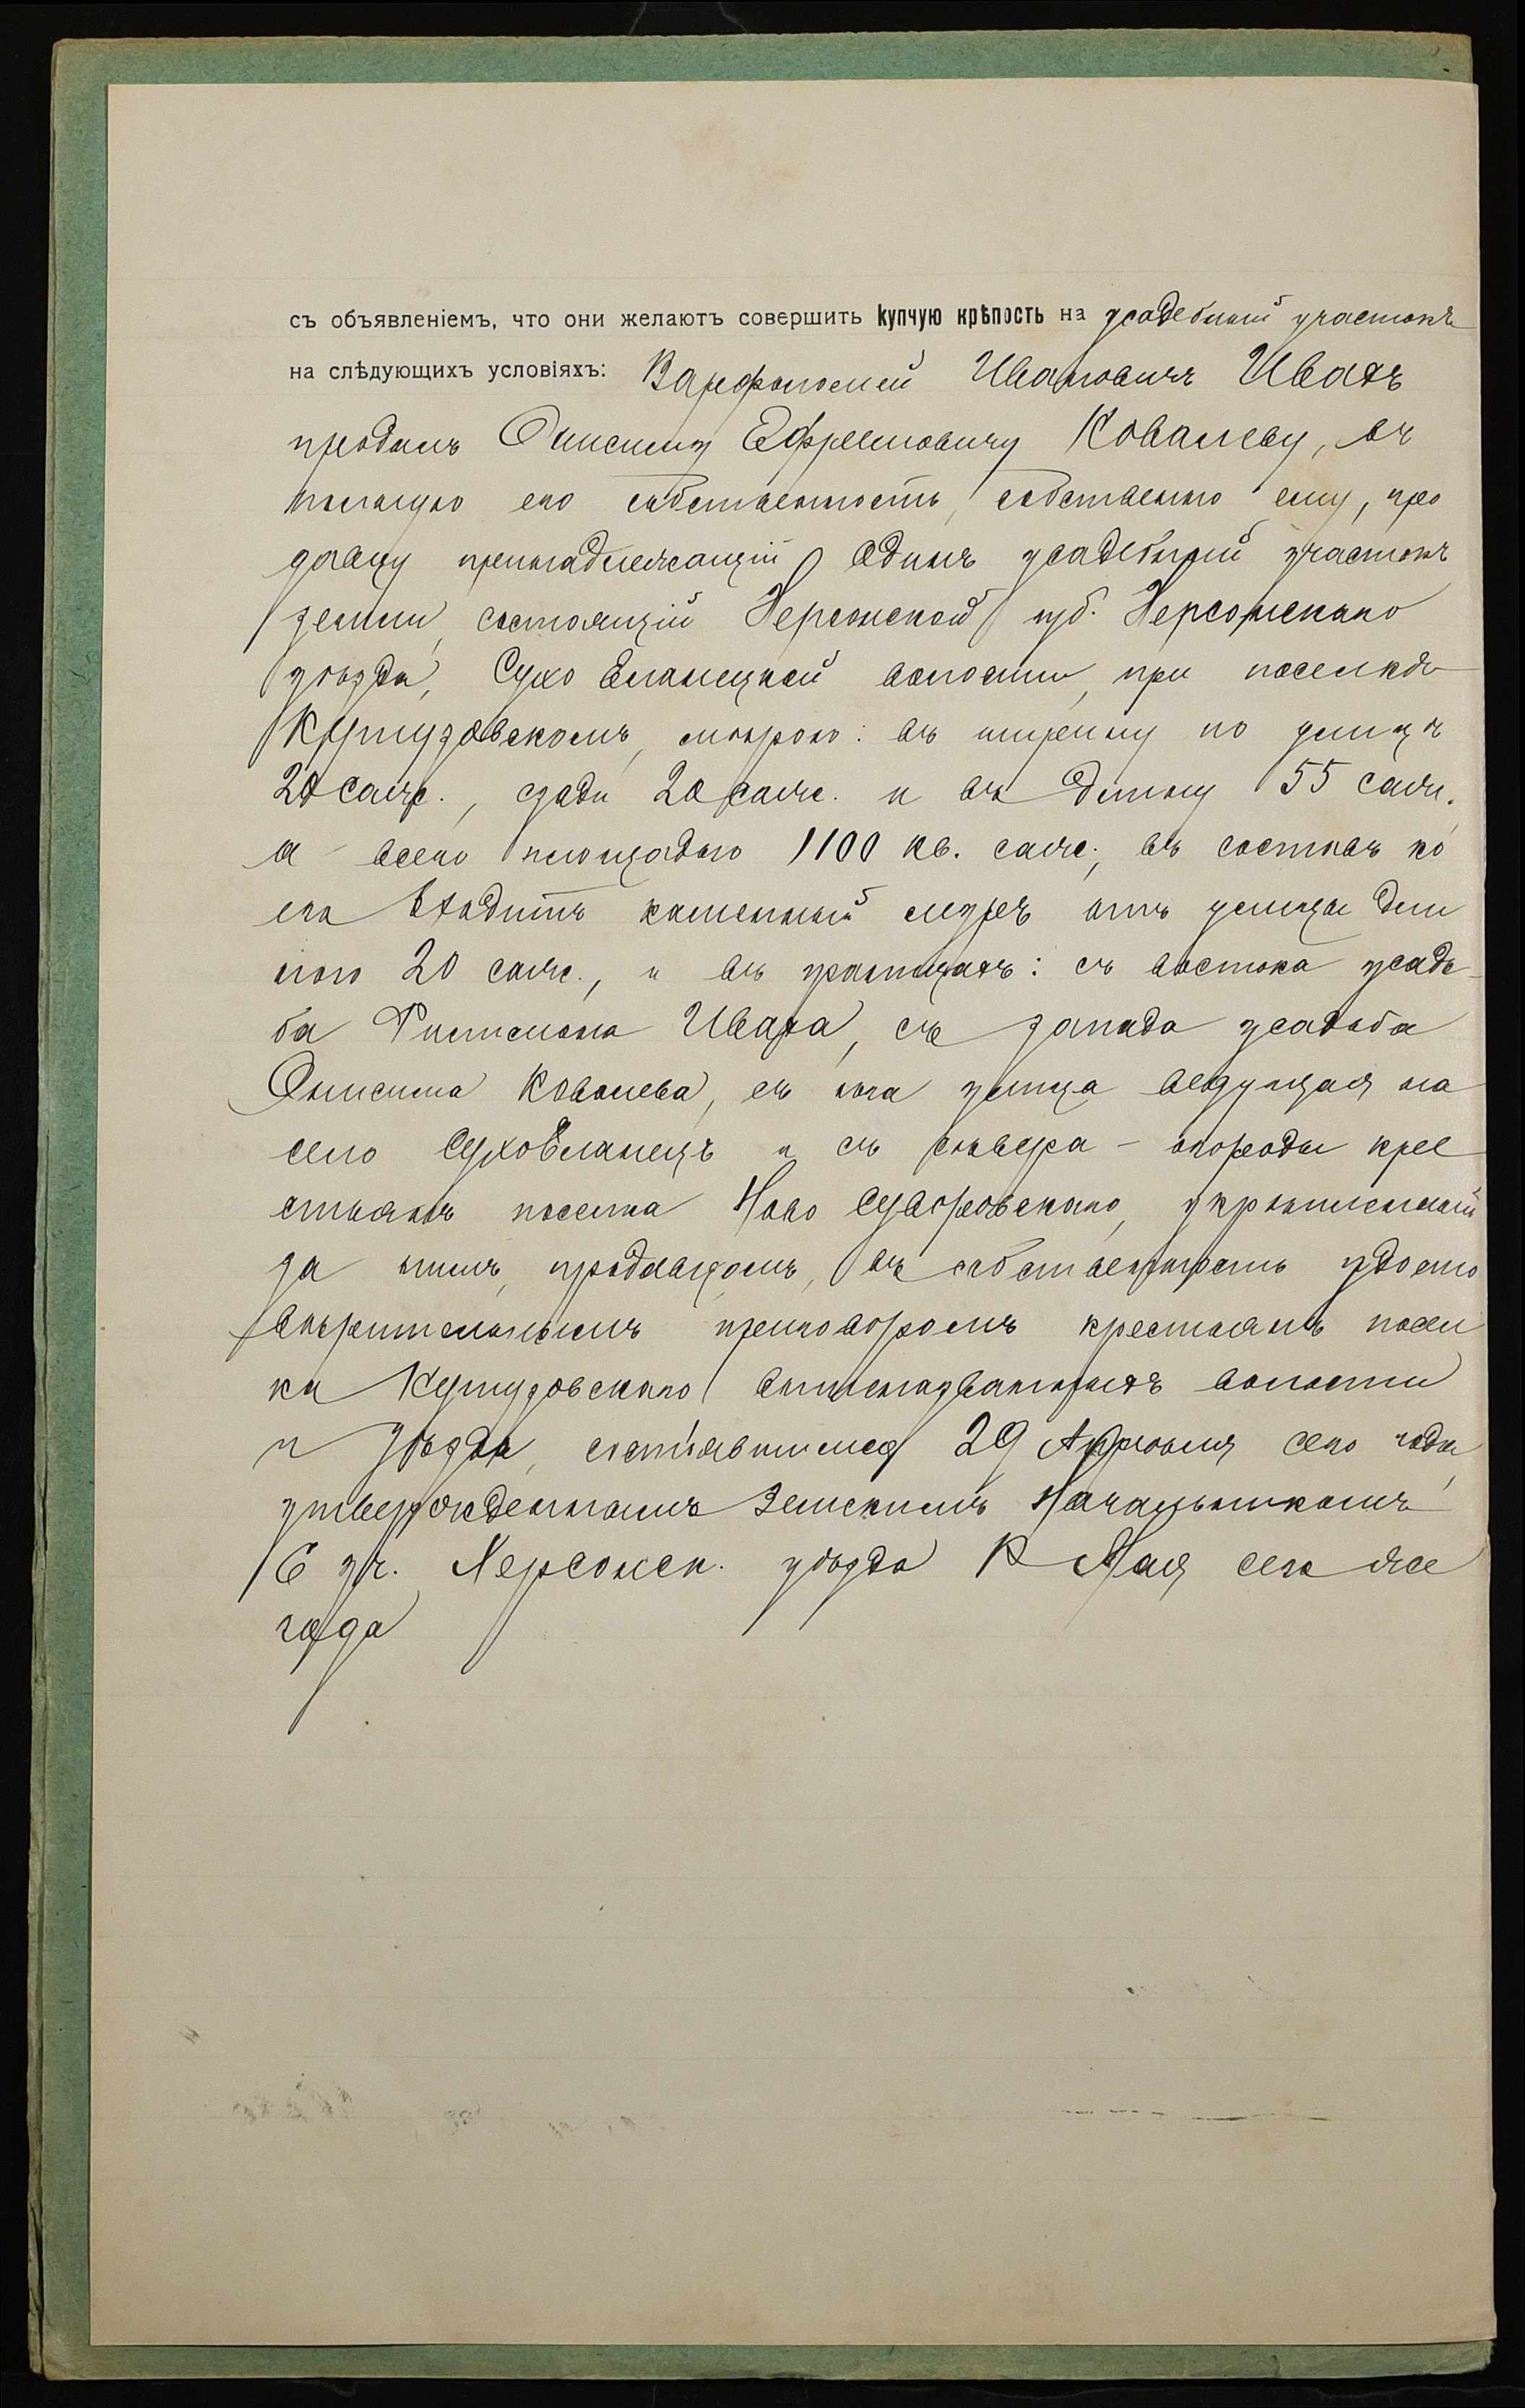 съ объявленіемъ, что они желаютъ совершить купчую крѣпость на усадебный участокъ
на слѣдующихъ условіяхъ: Варфоломей ИвановичъИвахъ
продалъ Онисиму Ефремовичу Ковалеву, въ
полную его собственность, собственно ему, про
давцу принадлежащій один усадебный участокъ
земли, состоящій Херсонской губ. Херсонскаго
уѣзда, Сухо Еланецкой волости, при поселкѣ
Кутузовскомъ, мѣрою: въ ширину по улицѣ
20 саж., сзади 20 саж. и въ длину 55 саж.,
а всего площадью 1100 кв. саж., въ составъ ко
его входитъ каменный муръ отъ улицы дли
ною 20 саж., и въ границахъ: съ востока усадь
ба Филимона Иваха, съ запада усадьба
Онисима Ковалева, съ юга улица ведущая на
село СухоЕланецъ и съ сѣвера - огороды кре
стьянъ поселка Ново Суворовскаго, укрѣпленный
за нимъ, продавцомъ, въ собственность удосто
вѣрительнымъ приговоромъ крестьянъ посел
ка Кутузовскаго вышеназванныхъ волости
и уѣзда, состоявшимся 29 Апрѣля сего года,
утвержденнымъ Земскимъ Начальникомъ
6 уч. Херсонск. уѣзда Мая сего же
года